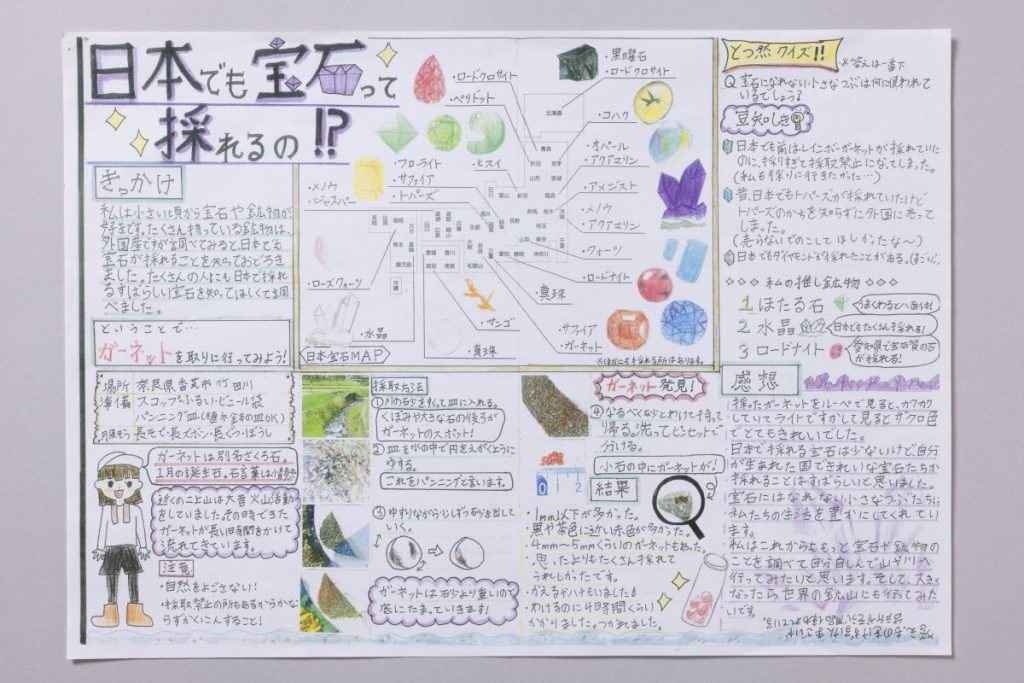 日本でも宝石って
採れるの⁉
きっかけ
私は小さい頃から宝石や鉱物が
好きです。たくさん持っている鉱物は、
外国産ですが調べてみると、日本でも
宝石が採れることを知っておどろき
ました。たくさんの人にも日本で採れ
るすばらしい宝石を知ってほしくて調
べました。
ということで…
ガーネットを取りに行ってみよう!
場所 奈良県香芝市竹田川
準備 スコップ・ふるい・ビニール袋
パンニング皿(植木金本の皿OK)
長そで・長ズボン・長ぐつ・ぼうし
ガーネットは別名ざくろ石。
1月の誕生石。石言葉は情熱
近くの二上山は大昔火山活動
をしていました。その時できた
ガーネットが長い時間をかけて
流れてきています。
注意
・自然をよごさない!
・採取禁止の所もあるからかな
らずかくにんすること!
・ロードクロサイト
・ペリドット
・黒曜石
・ロードクロサイト
北海道
・コハク
・オパール
・アクアマリン
・アメジスト
・メノウ
・アクアマリン
・クォーツ
・ロードナイト
・真珠
・サファイア
・ガーネット
・フローライト
・サファイア
・トパーズ
・ヒスイ
・メノウ
・ジャスパー
・ローズクォーツ
・水晶
・サンゴ
・真珠
青森
秋田 岩手
山形 宮城
日本宝石MAP
※ほかにも採れる所はあります。
採取方法
①川の砂をすくって皿に入れる。
くぼみや大きな石の後ろが
ガーネットのスポット!
②皿を水の中で円をえがくように
ゆする。
これをパンニングと言います。
③ゆすりながら少しずつ砂を出して
いく。
ガーネットは石少より重いので
底にたまっていきます!
ガーネット発見!
④なるべく砂とわけて持って
帰る。洗ってピンセットで
分ける。
小石の中にガーネットが!
0 1 2
結果
・1mm以下が多かった。
・黒や茶色に近い赤色が多かった。
・4mm〜5mmくらいのガーネットもあった。
・思ったよりもたくさん採れて
うれしかったです。
・わけるのに4時間くらい
かかりました。つかれました。
とつ然クイズ!!
※答えは一番下
Q 宝石になれない小さなつぶは何に使われて
いるでしょう?
豆知しき
日本でも前はレインボーガーネットが採れていた
のに、採りすぎて採取禁止になってしまった。
(私も採りに行きたかった…)
昔、日本でもトパーズが採れていたけど
トパーズのかちを知らずに外国に売って
しまった。
(売らないでのこしてほしかったな〜)
日本でもダイヤモンドが採れたことがある。
私の推し鉱物
1 ほたる石
うまくわると八面体!
2 水晶
日本でもたくさん採れる!
3 ロードナイト
愛知県で宝石質の石
が採れる!
感想
採ったガーネットをルーペで見ると、カクカク
していてライトですかして見るとザクロ色
でとてもきれいでした。
日本で採れる宝石は少ないけど、自分
が生まれた国できれいな宝石たちが
採れることはすばらしいと思いました。
宝石にはなれない小さなつぶたちに
私たちの生活を豊かにしてくれてい
ます。
私はこれからももっと宝石や鉱物の
ことを調べて自分自しんで山や川へ
行ってみたいと思います。そして、大きく
なったら世界の鉱山にも行ってみた
いです。